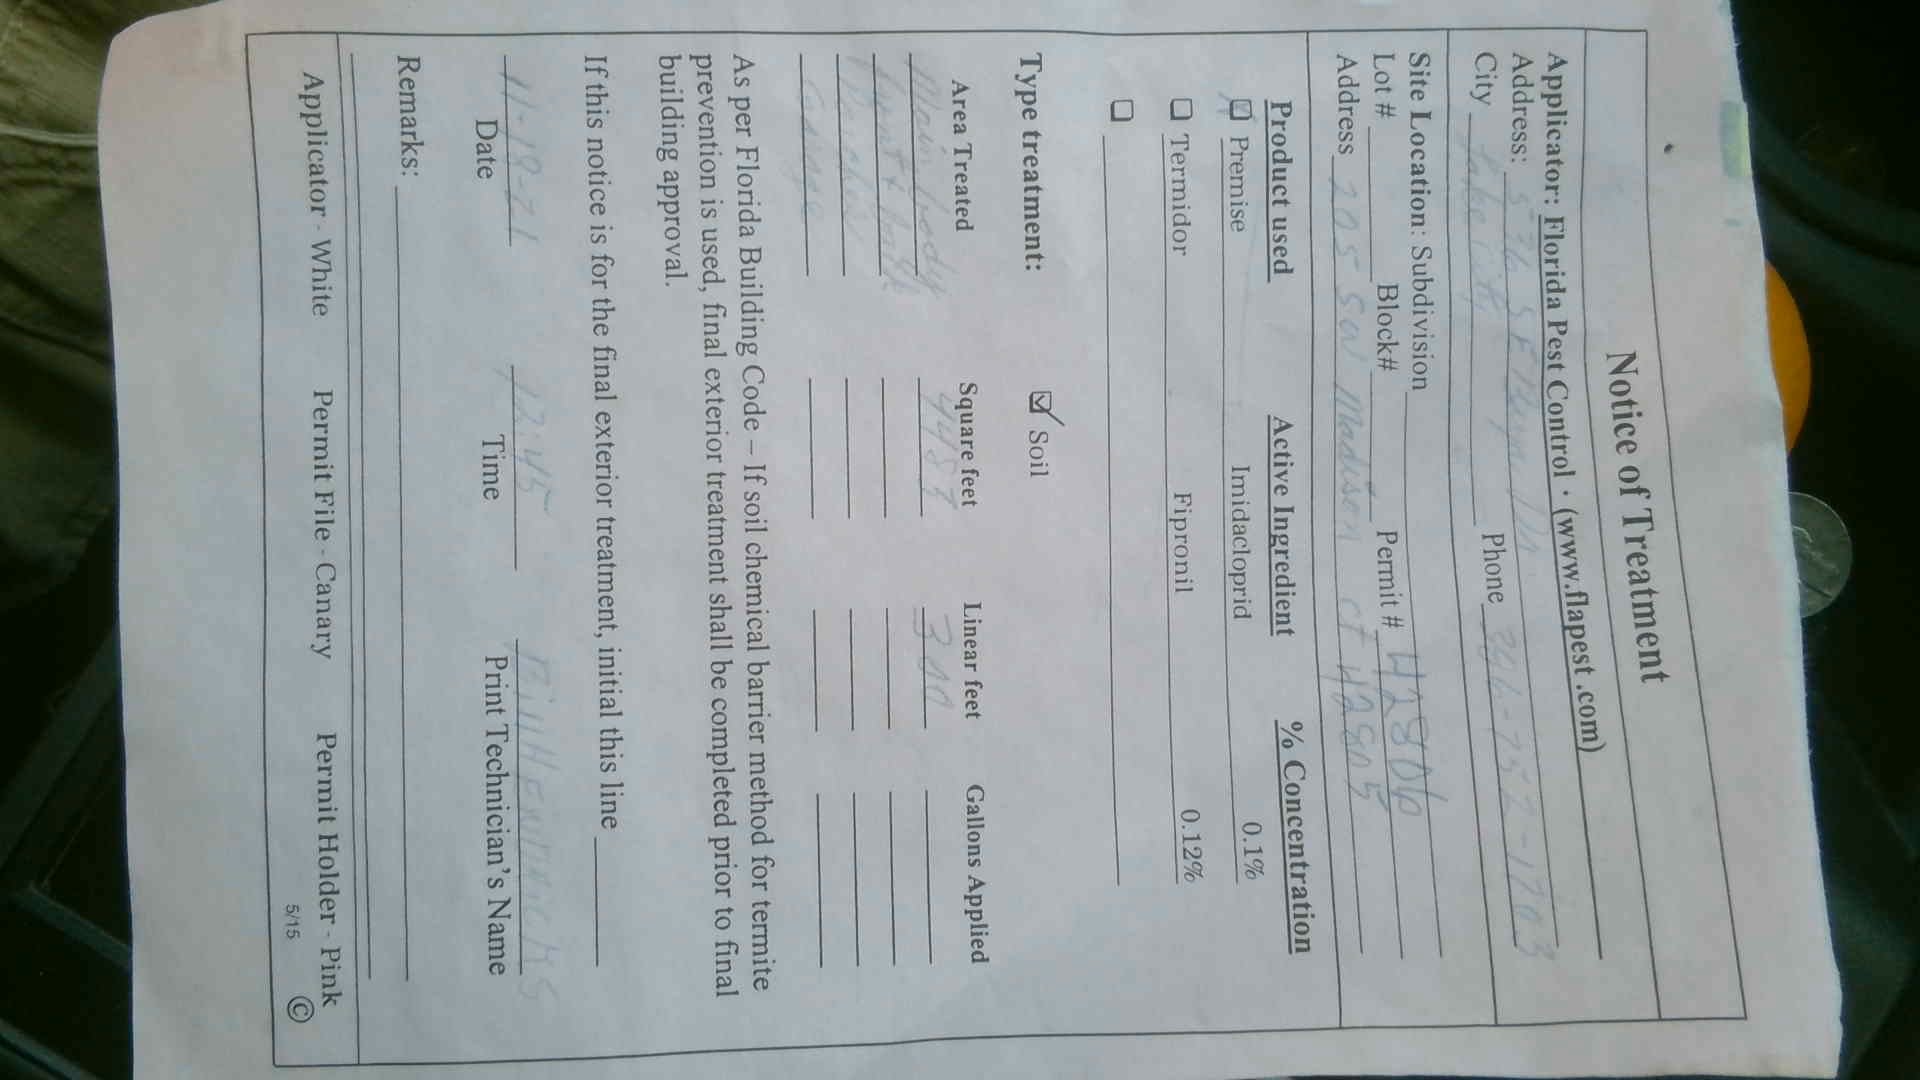 Notice of Treatment
Applicator: Florida Pest Control · (www.flapest.com)
Address: 536 SE
City Lake City Phone 386-752-1703
Site Location: Subdivision
Lot # Block# Permit # 42806
Address 205 SW Madison Ct 42805
Product used Active Ingredient % Concentration
Premise Imidacloprid 0.1%
Termidor Fipronil 0.12%
Type treatment: Soil
Area Treated Square feet Linear feet Gallons Applied
Main body 4483 300
Front & back
Porches
Garage
As per Florida Building Code – If soil chemical barrier method for termite
prevention is used, final exterior treatment shall be completed prior to final
building approval.
If this notice is for the final exterior treatment, initial this line
11-19-21 12:45 Bill
Date Time Print Technician's Name
Remarks:
Applicator - White Permit File - Canary Permit Holder - Pink
5/15 ©